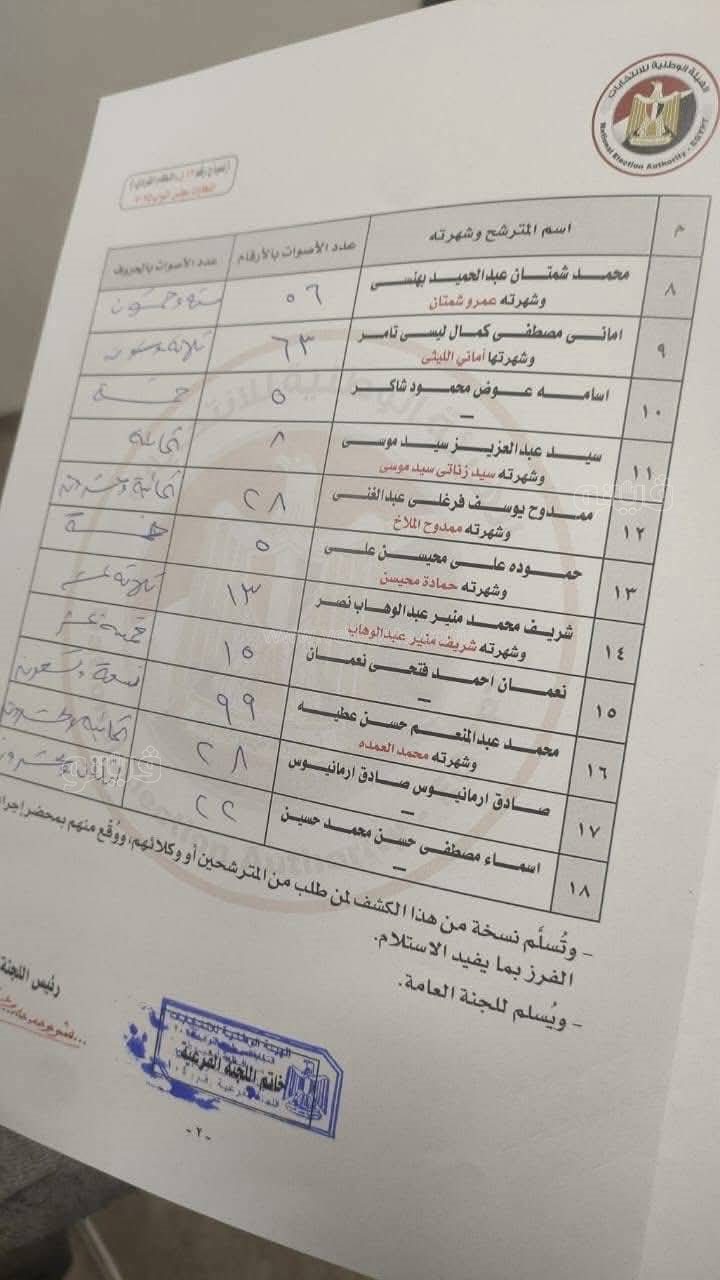 الهيئة الوطنية للانتخابات
National Election Authority - EGYPT
م اسم المترشح وشهرته عدد الأصوات بالأرقام عدد الأصوات بالحروف
٨ محمد شمتان عبدالحميد بهنسى ٥٦ ستة وخمسون
وشهرته عمرو شمتان
٩ امانى مصطفى كمال ليسى تامر ٦٣ ثلاثة وستون
وشهرتها أماني الليثى
١٠ اسامه عوض محمود شاكر ٥ خمسة
—
١١ سيد عبدالعزيز سيد موسى ٨ ثمانية
وشهرته سيد زناتى سيد موسى
١٢ ممدوح يوسف فرغلى عبدالغنى ٢٨ ثمانية وعشرون
وشهرته ممدوح الملاخ
١٣ حموده على محيسن على ٥ خمسة
وشهرته حمادة محيسن
١٤ شريف محمد منير عبدالوهاب نصر ١٣ ثلاثة عشر
وشهرته شريف منير عبدالوهاب
١٥ نعمان احمد فتحى نعمان ١٥ خمسة عشر
—
١٦ محمد عبدالمنعم حسن عطيه ٩٩ تسعة وتسعون
وشهرته محمد العمده
١٧ صادق ارمانيوس صادق ارمانيوس ٢٨ ثمانية وعشرون
—
١٨ اسماء مصطفى حسن محمد حسين ٢٢
—
- وتُسلَّم نسخة من هذا الكشف لمن طلب من المترشحين أو وكلائهم، ووُقع منهم بمحضر
الفرز بما يفيد الاستلام.
- ويُسلم للجنة العامة.
رئيس اللجنة
الهيئة الوطنية للانتخابات
خاتم اللجنة الفرعية
- ٢ -
فيتو
فيتو